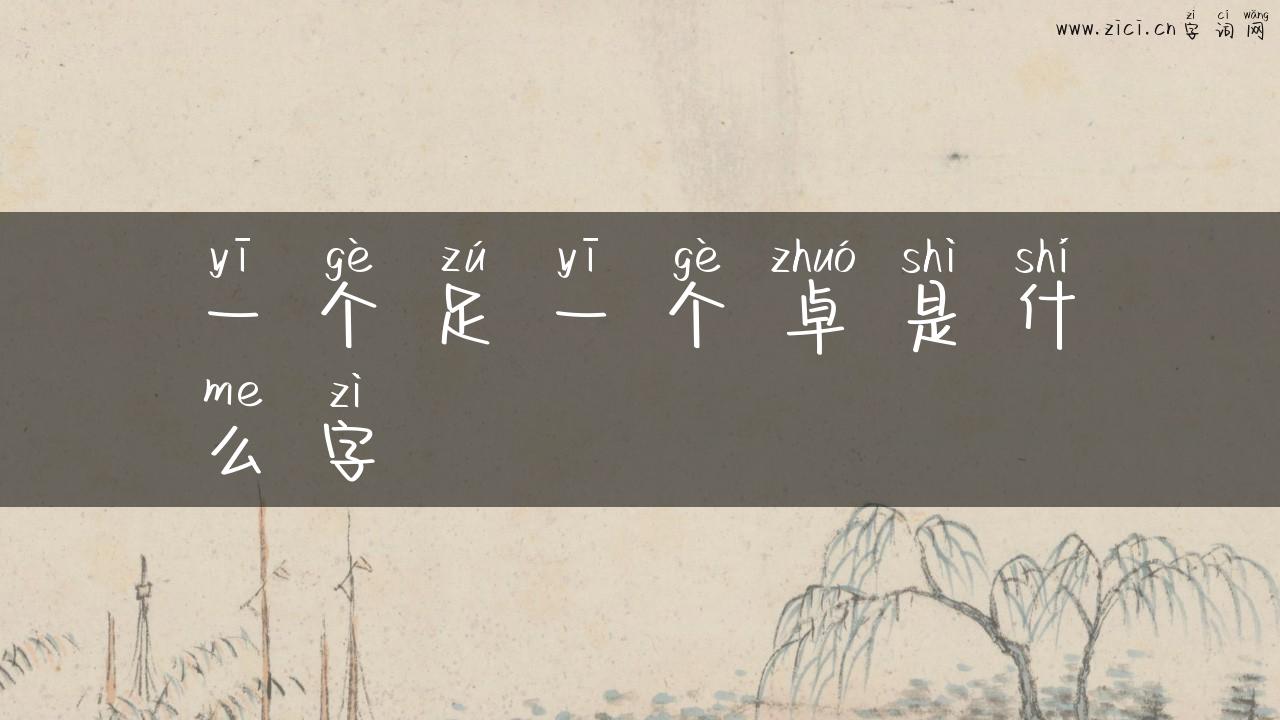 www.zici.cn zì cí wǎng
字词网
yī gè zú yī gè zhuó shì shí
一个足一个卓是什
me zì
么字